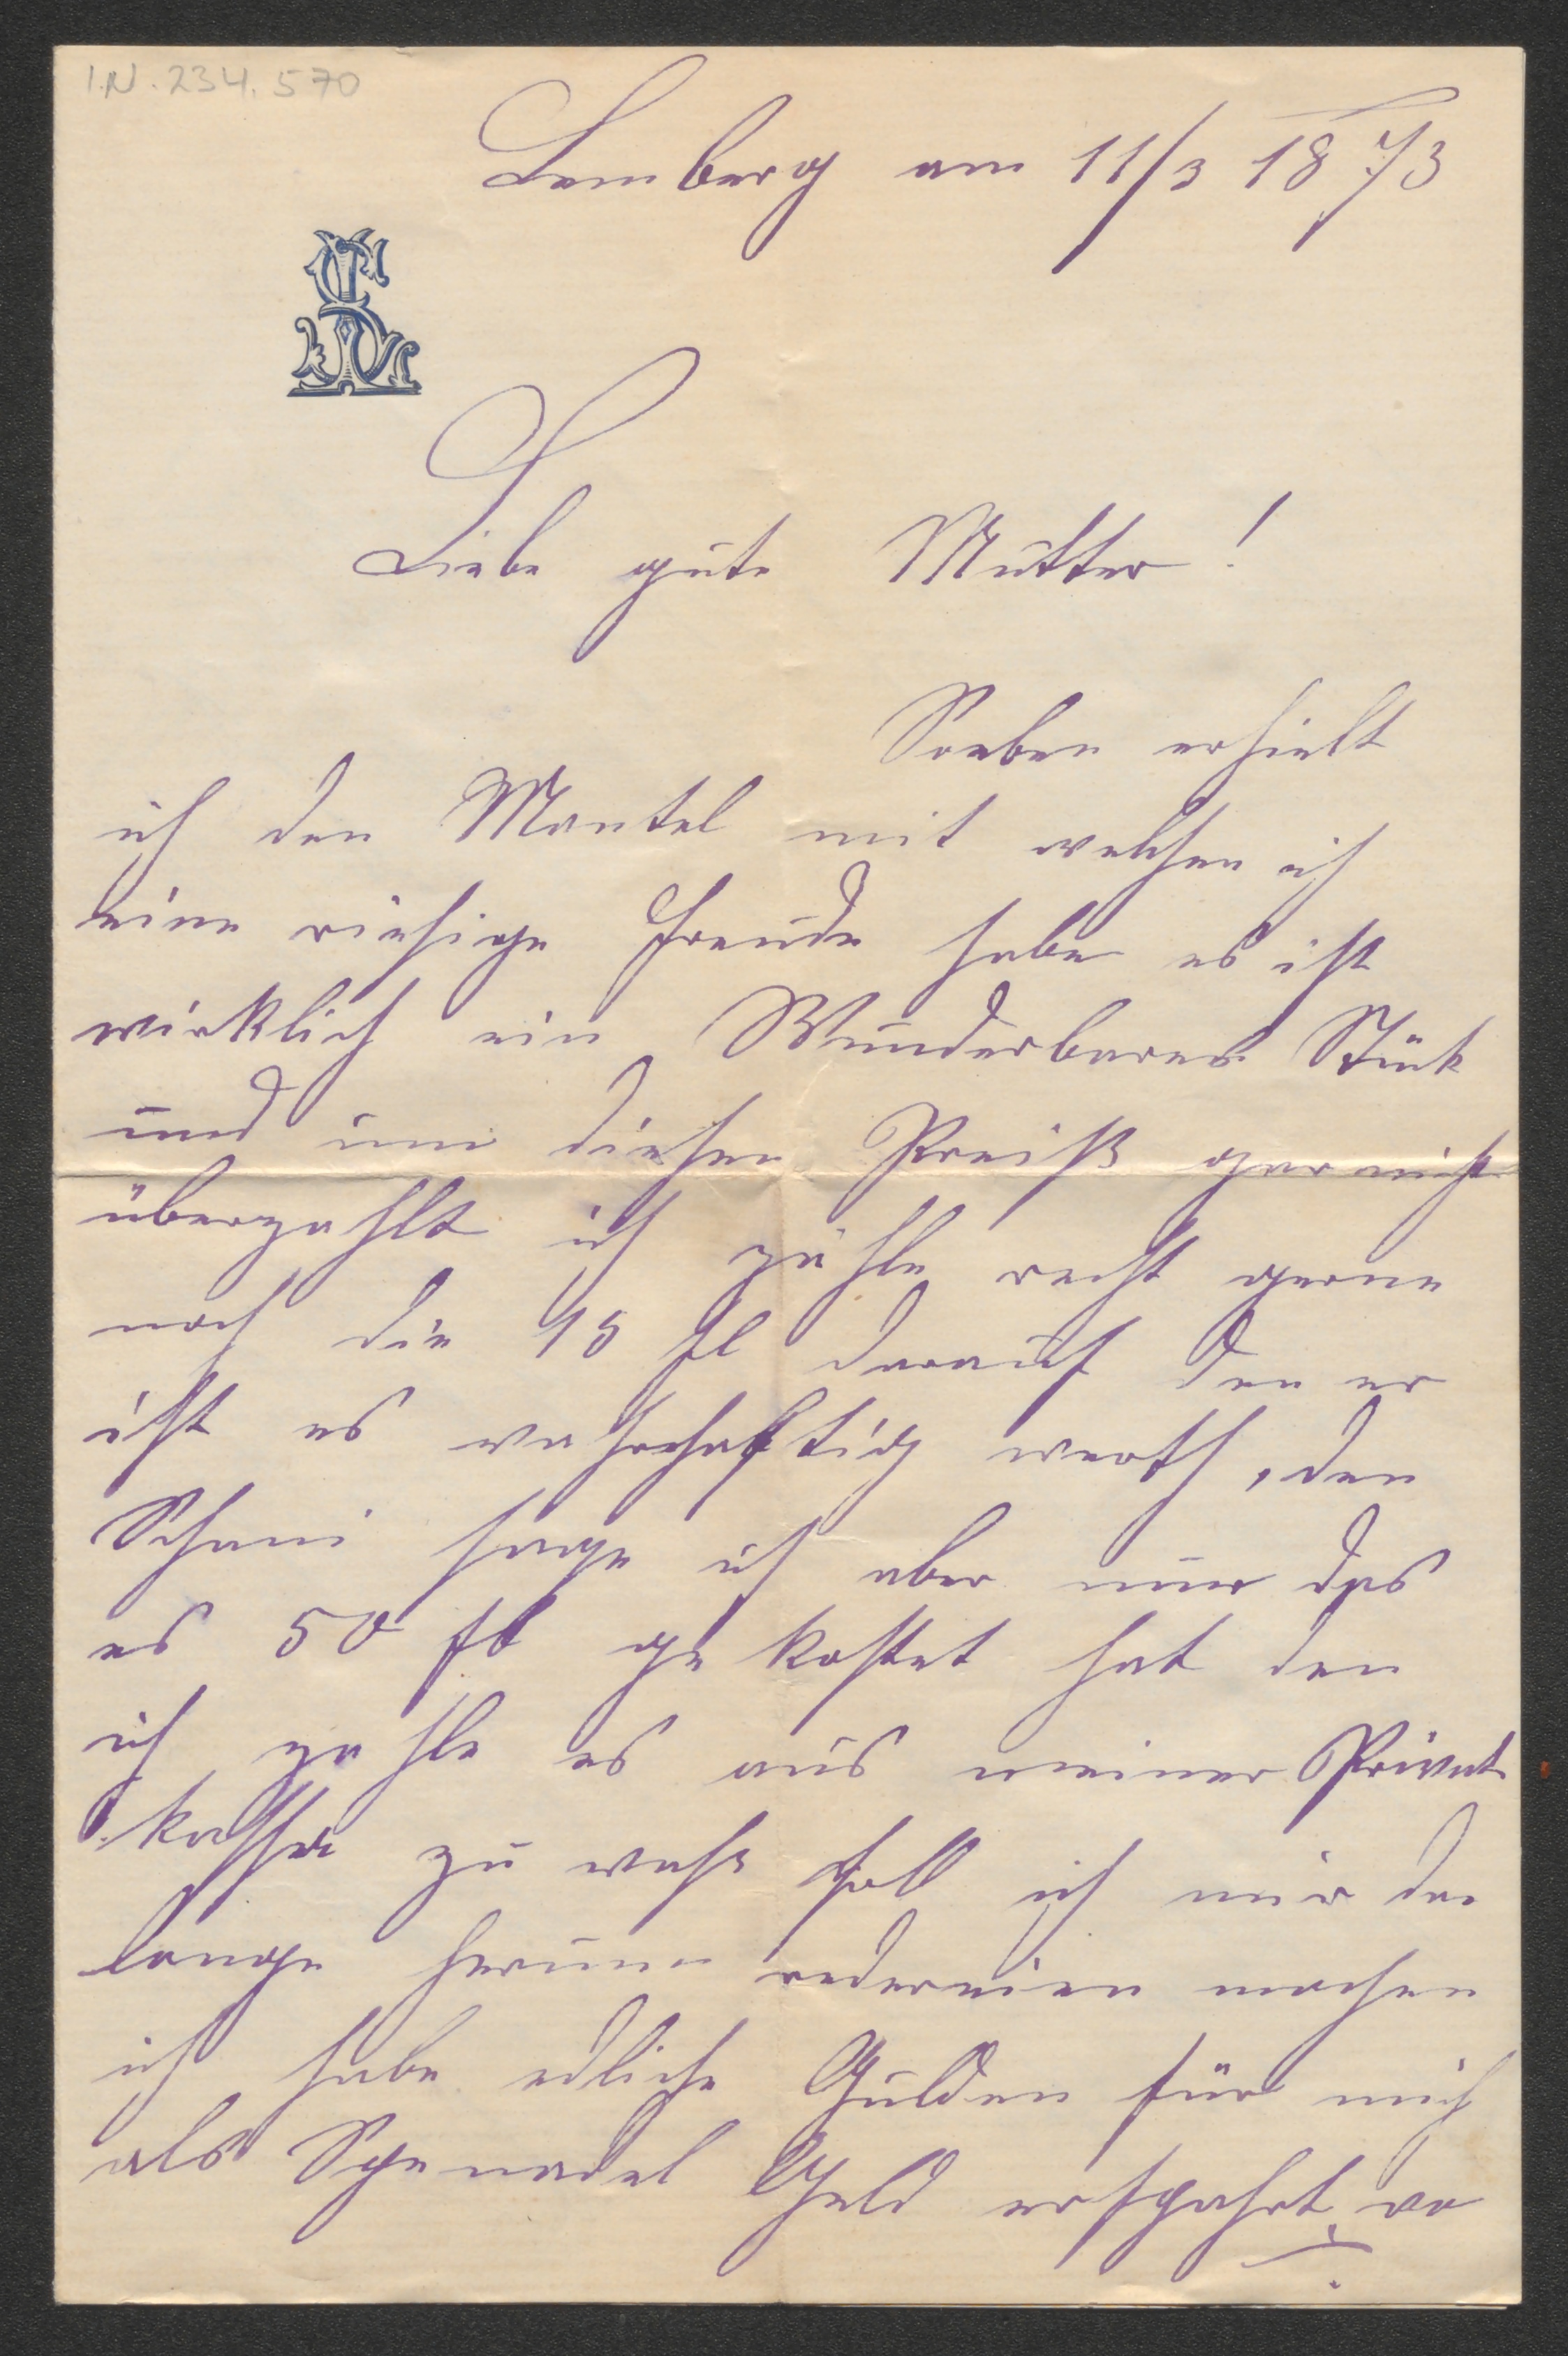 I.N. 234.570
Lemberg am 11/3 1873
Liebe gute Mutter!
Soeben erhielt
ich den Mantel mit welchen ich
eine riesige Freude habe es ist
wirklich ein Wunderbares Stük
und um diesen Preiß gar nicht
überzahlt ich zahle recht gerne
noch die 15 fl darauf den er
ist es wahrhaftig werth, den
Schani sage ich aber nur das
es 50 fl gekostet hat den
ich zahle es aus meiner Privat
kassa zu wahs soll ich mir da
lange herum redereien machen
ich habe edliche Gulden für mich
als Spenadel Geld erspahrt wo